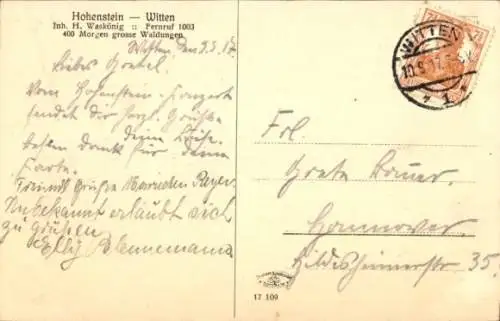 Hohenstein — Witten
Inh. H. Waskönig :: Fernruf 1003
400 Morgen grosse Waldungen
Witten den 9.5.17.
Liebes Gretel.
Vom Hohenstein-Konzert
sendet dir herzl. Grüße
deine
besten Dank für deine
Karte.
Freundl. Grüße
Unbekannt erlaubt sich
zu grüßen
Elly Blennemann
WITTEN
10.5.17.
* 1 *
Frl.
Grete Bauer.
Hannover.
Hildesheimerstr 35.
17 109